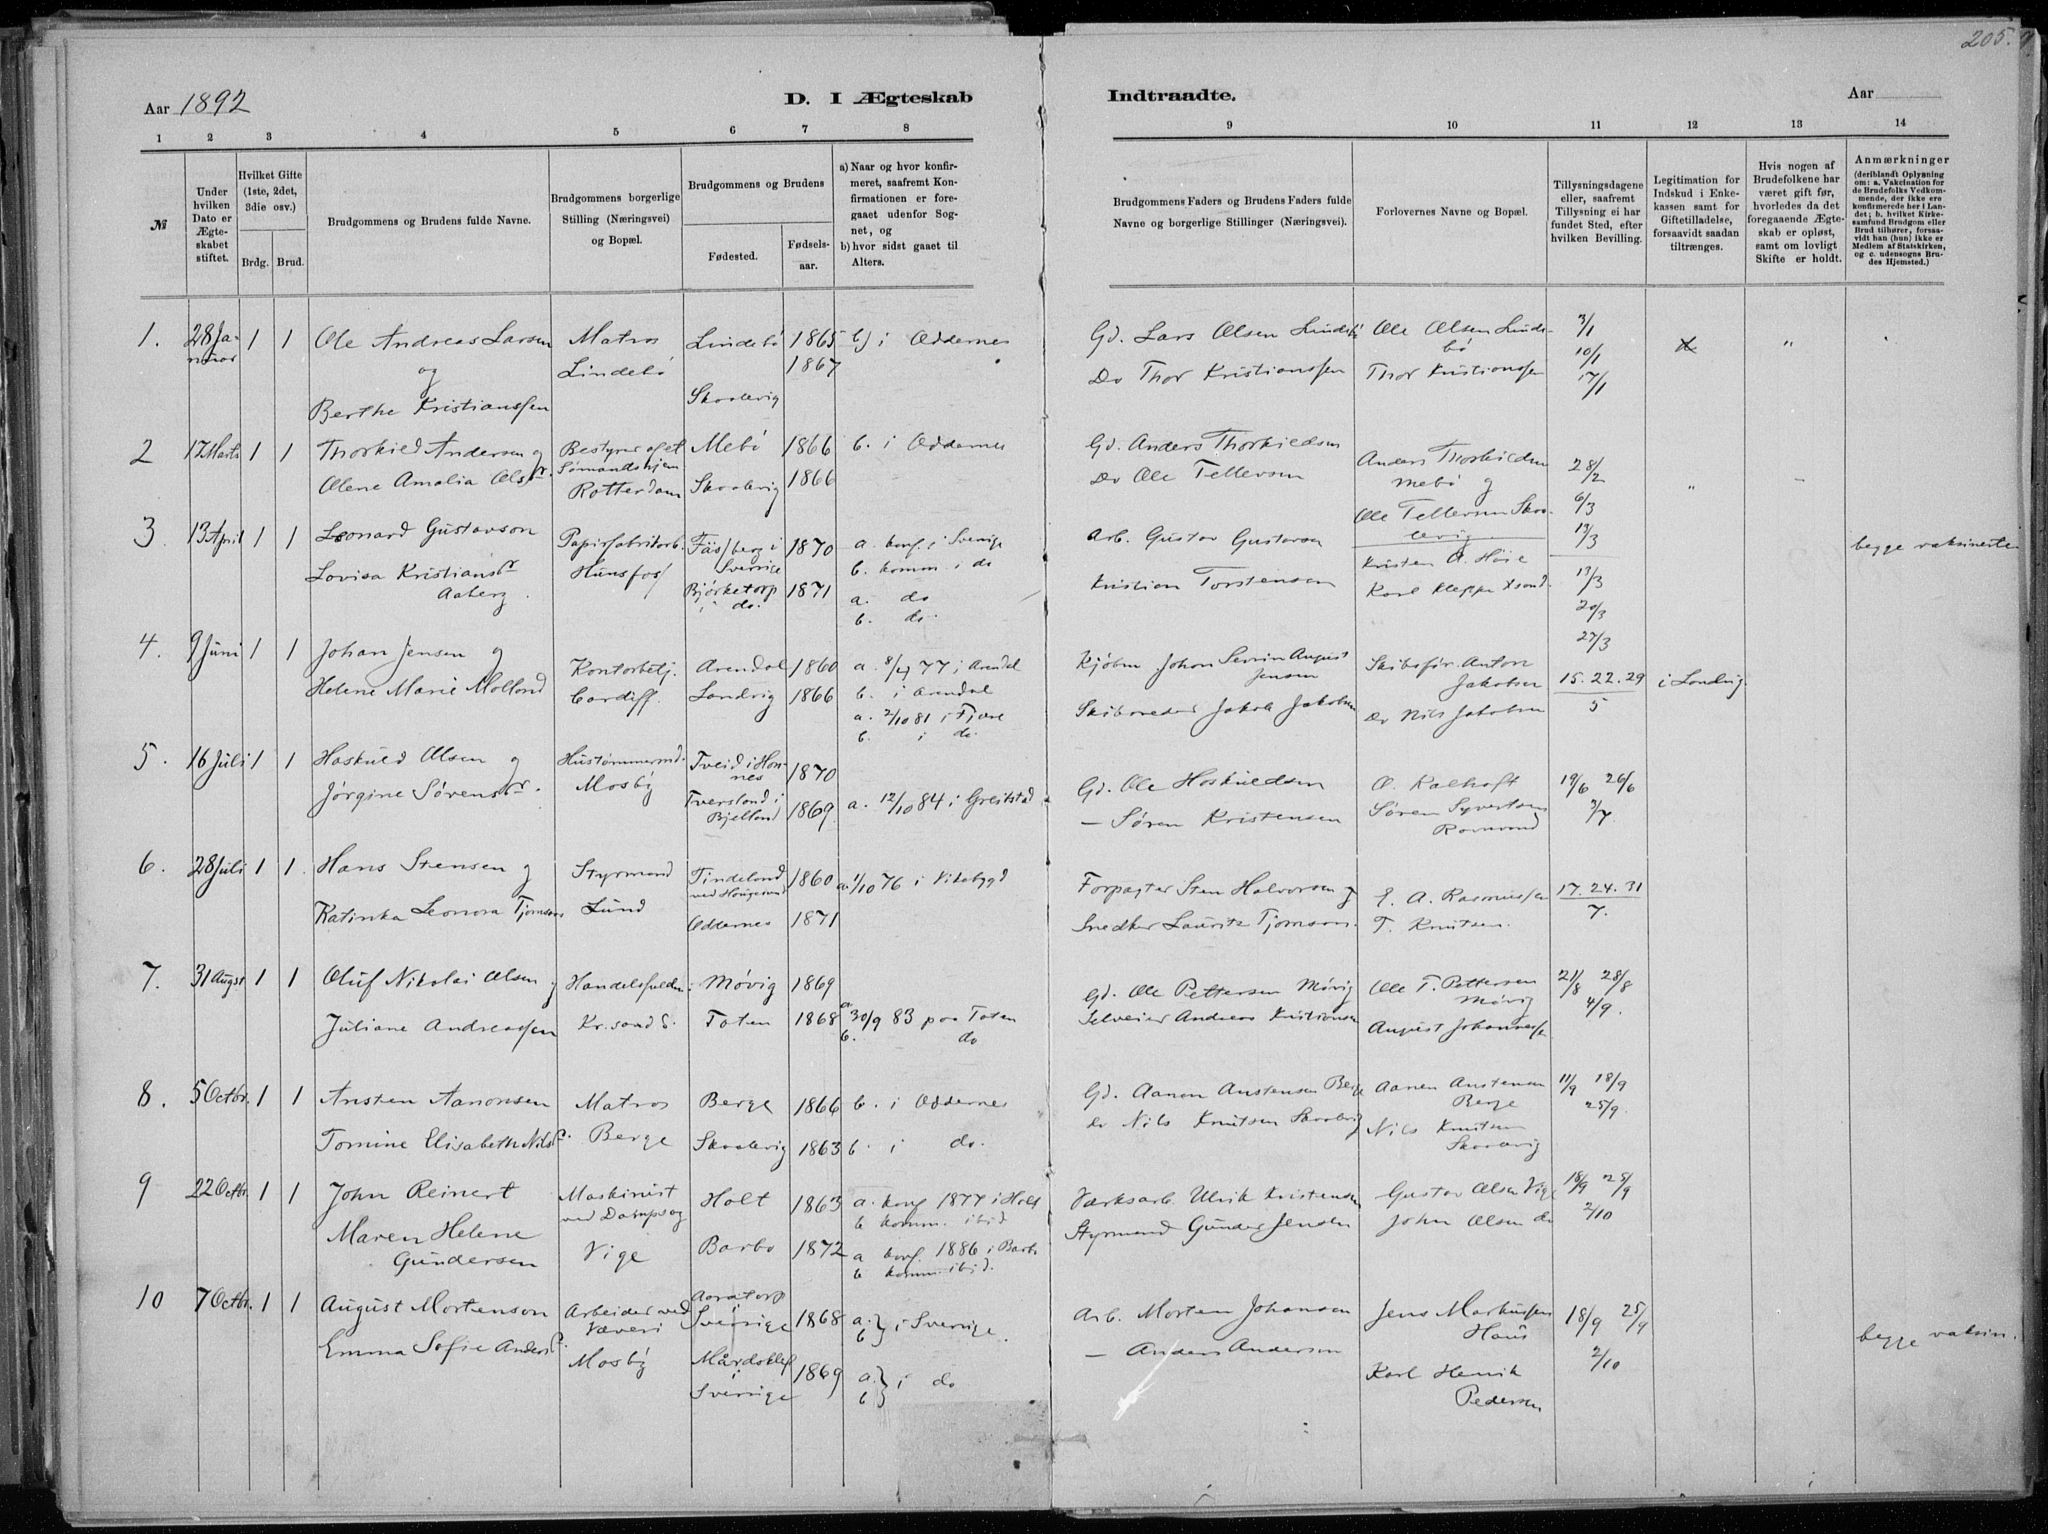 205.
Aar 1892
D. I Ægteskab
Indtraadte.
Aar
1 2 3 4 5 6 7 8
9 10 11 12 13 14
№
Under hvilken Dato er Ægteskabet stiftet.
Hvilket Gifte (1ste, 2det, 3die osv.)
Brdg. Brud.
Brudgommens og Brudens fulde Navne.
Brudgommens borgerlige Stilling (Næringsvei) og Bopæl.
Brudgommens og Brudens
Fødested.
Fødselsaar.
a) Naar og hvor konfirmeret, saafremt Konfirmationen er foregaaet udenfor Sognet, og
b) hvor sidst gaaet til Alters.
Brudgommens Faders og Brudens Faders fulde Navne og borgerlige Stillinger (Næringsvei).
Forlovernes Navne og Bopæl.
Tillysningsdagene eller, saafremt Tillysning ei har fundet Sted, efter hvilken Bevilling.
Legitimation for Indskud i Enkekassen samt for Giftetilladelse, forsaavidt saadan tiltrænges.
Hvis nogen af Brudefolkene har været gift før, hvorledes da det foregaaende Ægteskab er opløst, samt om lovligt Skifte er holdt.
Anmærkninger
(deriblandt Oplysning om: a. Vakcination for de Brudefolks Vedkommende, der ikke ere konfirmerede her i Landet; b. hvilket Kirkesamfund Brudgom eller Brud tilhører, forsaavidt han (hun) ikke er Medlem af Statskirken, og c. udensogns Brudes Hjemsted.)
1. 28 Januar 1 1 Ole Andreas Larsen Matros Lindebø 1865 b) i Oddernes
og Lindebø 1867
Berthe Kristianssen Skaalevig
Gd. Lars Olsen Lindebø Ole Olsen Lindebø 3/1
10/1
Do Thor Kristianssen Thor Kristianssen 17/1
2 17 Marts 1 1 Thorkild Andersen og Bestyrer af et Mebø 1866 b. i Oddernes
Sømandshjem
Olene Amalia Olsdr. Rotterdam Skaalevig 1866
Gd. Anders Thorkildsen Anders Thorkildsen 28/2
Do Ole Tellersen Mebø og
Ole Tellersen Skaalevig 6/3
13/3
3 13 April 1 1 Leonard Gustavson Papirfabrikarb. Fässberg i Sverrige 1870 a. konf. i Sverige
b. komm. i do
Lovisa Kristiansdr Hunsfos Bjørketorp i do. 1871 a. do
Aaberg. b. do.
Arb. Gustav Gustavson Kristen O. Høie 13/3 begge vaksinerte
Kristian Torstensen Karl Kleppe Xsand. 20/3
27/3
4. 9 Juni 1 1 Johan Jensen og Kontorbetj. Arendal 1860 a. 77 i Arendal
b. i Arendal
Helene Marie Molland Cardiff. Landvig 1866 a. 2/10 81 i Fjære
b. i do
Kjøbm Johan Severin August Jensen Skibsfør. Anton Jakobsen 15. 22. 29 i Landvig.
Skibsreder Jakob Jakobsen Do Nils Jakobsen 5
5. 16 Juli 1 1 Haskuld Olsen og Hustømmermd. Tveid i Hornnes 1870
Jørgine Sørensdr. Mosby Tversland i Bjelland 1869 a. 12/10 84 i Greibstad
Gd. Ole Haskuldsen O. Kalhoft 19/6 26/6
— Søren Kristensen Søren Syvertsen Ravnaas 3/7
6. 28 Juli 1 1. Hans Stensen og Styrmand Tindeland ved Haugesund 1860 a. 1/10 76 i Vikebygd
Katinka Leonora Tjomsen Lund Oddernes 1871
Forpagter Sten Halvorsen og E. A. Rasmussen 17. 24. 31
Snedker Lauritz Tjomsen. T. Knutsen. 7.
7. 31 August 1 1 Oluf Nikolai Olsen og Handelsfuldm: Møvig 1869
Juliane Andreassen Kr.sand S. Toten 1868 a. 30/9 83 paa Toten
b. do
Gd. Ole Pettersen Møvig Ole T. Pettersen 21/8 28/8
Møvig 4/9.
Selveier Andreas Kristiansen August Johannessen
8. 5 Octbr. 1 1 Ansten Aanonsen Matros Berge 1866 b. i Oddernes
Tomine Elisabeth Nilsdr. Berge Skaalevig 1863 b. i do.
Gd. Aanon Anstensen Berge Aanen Anstensen 11/9 18/9
Berge 25/9.
do Nils Knutsen Skaalevig Nils Knutsen
Skaalevig
9 22 Octbr. 1 1 John Reinert Maskinist Holt 1863 a. konf 1877 i Holt
ved Dampsag b komm. ibid
Maren Helene Gundersen Vige Barbo 1872 a konf. 1886 i Barbo
b komm. ibid.
Værksarb. Ulrik Kristensen Gustav Olsen Vige 18/9 25/9
Styrmand Gunder Jensen John Olsen do 2/10
10 7 Octbr. 1 1 August Mortenson Arbeider ved i Sverrige 1868 a. b } i Sverrige.
Væveri
Emma Sofie Andersdr. Mosby Mårdaklef i Sverrige 1869 a. b } i do
Arb. Morten Johansen Jens Markussen 18/9 25/9
Haus
— Anders Andersen 2/10 begge vaksin.
Karl Henrik
Pedersen